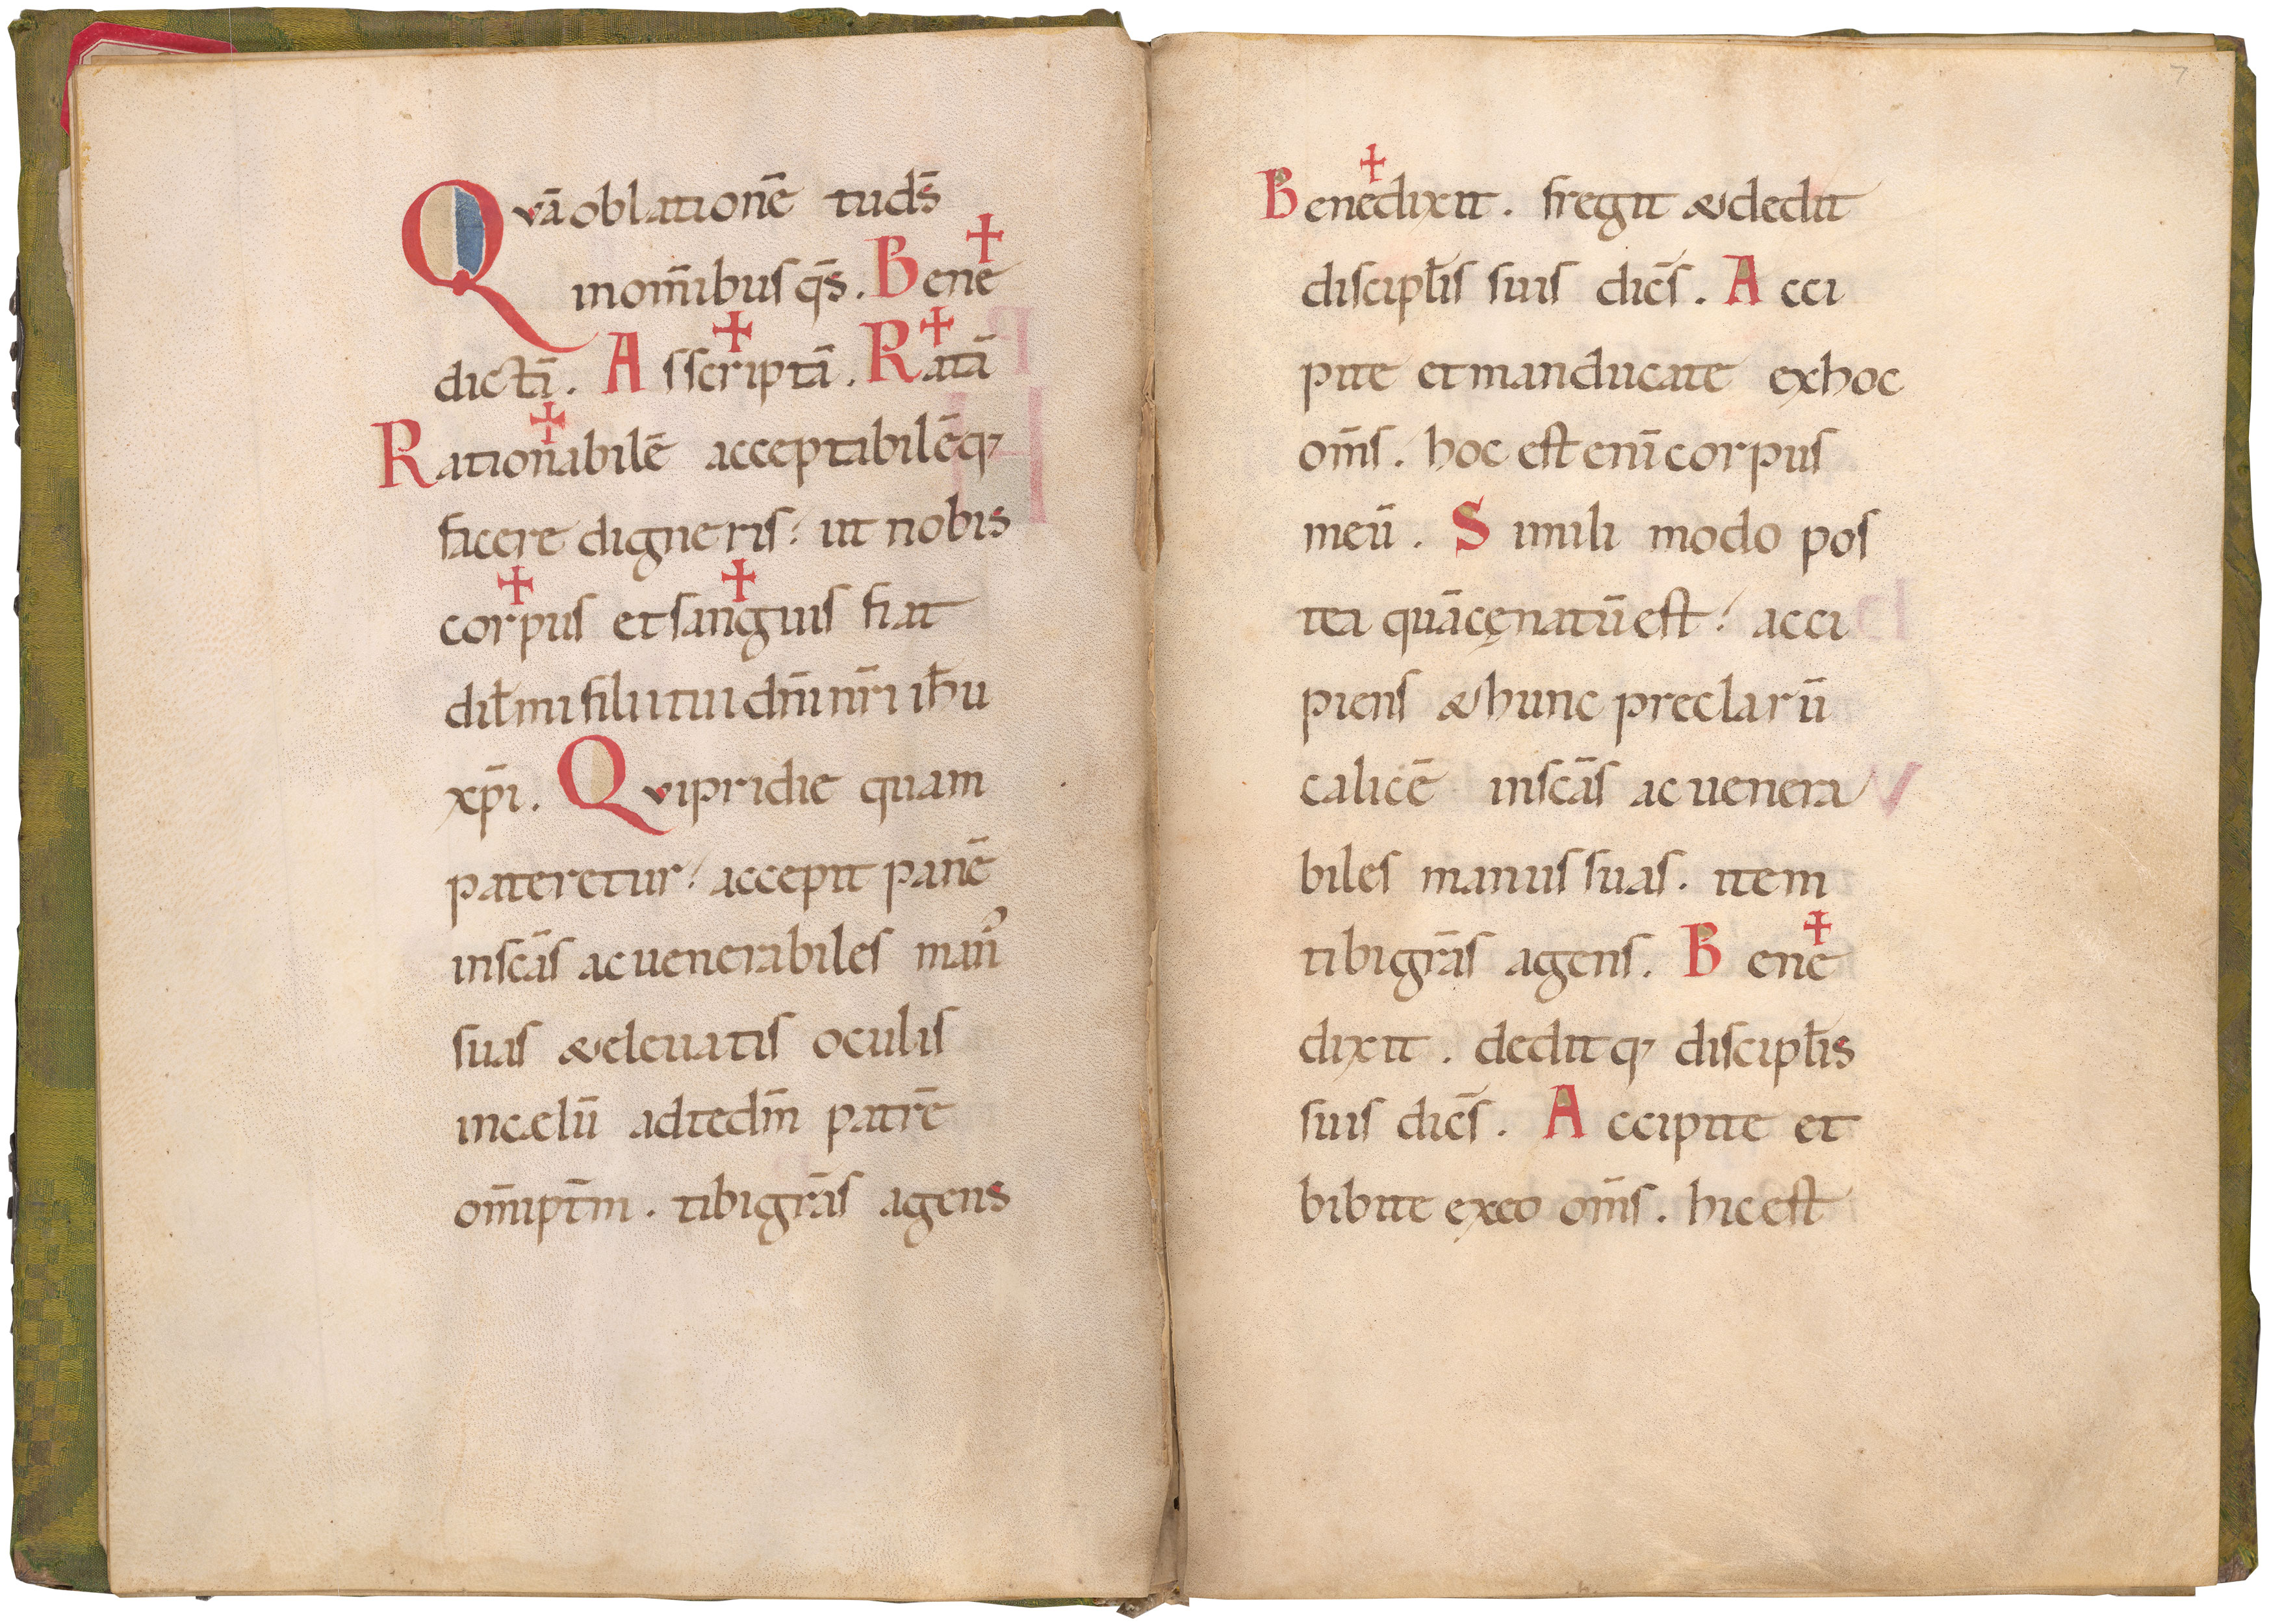 Quā oblationē tu ds̄
in om̄ibus qs̄. Bene
dictā. Asscriptā. Ratā
Rationabilē acceptabilēq;
facere digneris: ut nobis
corpus et sanguis fiat
dil̄mi filii tui dn̄i nr̄i ih̄u
xp̄i. Qui pridie quam
pateretur: accepit panē
in scās ac uenerabiles man᾽
suas & eleuatis oculis
in cælū ad te dm̄ patrē
om̄ipt̄m. tibi grās agens
7
Benedixit. fregit & dedit
discipl̄is suis dicēs. Acci
pite et manducate ex hoc
om̄s. hoc est enī corpus
meū. Simili modo pos
tea quā cęnatū est: acci
piens & hunc preclarū
calicē in scās ac uenera
biles manus suas. item
tibi grās agens. Bene
dixit. deditq; discipl̄is
suis dicēs. Accipite et
bibite ex eo om̄s. hic est